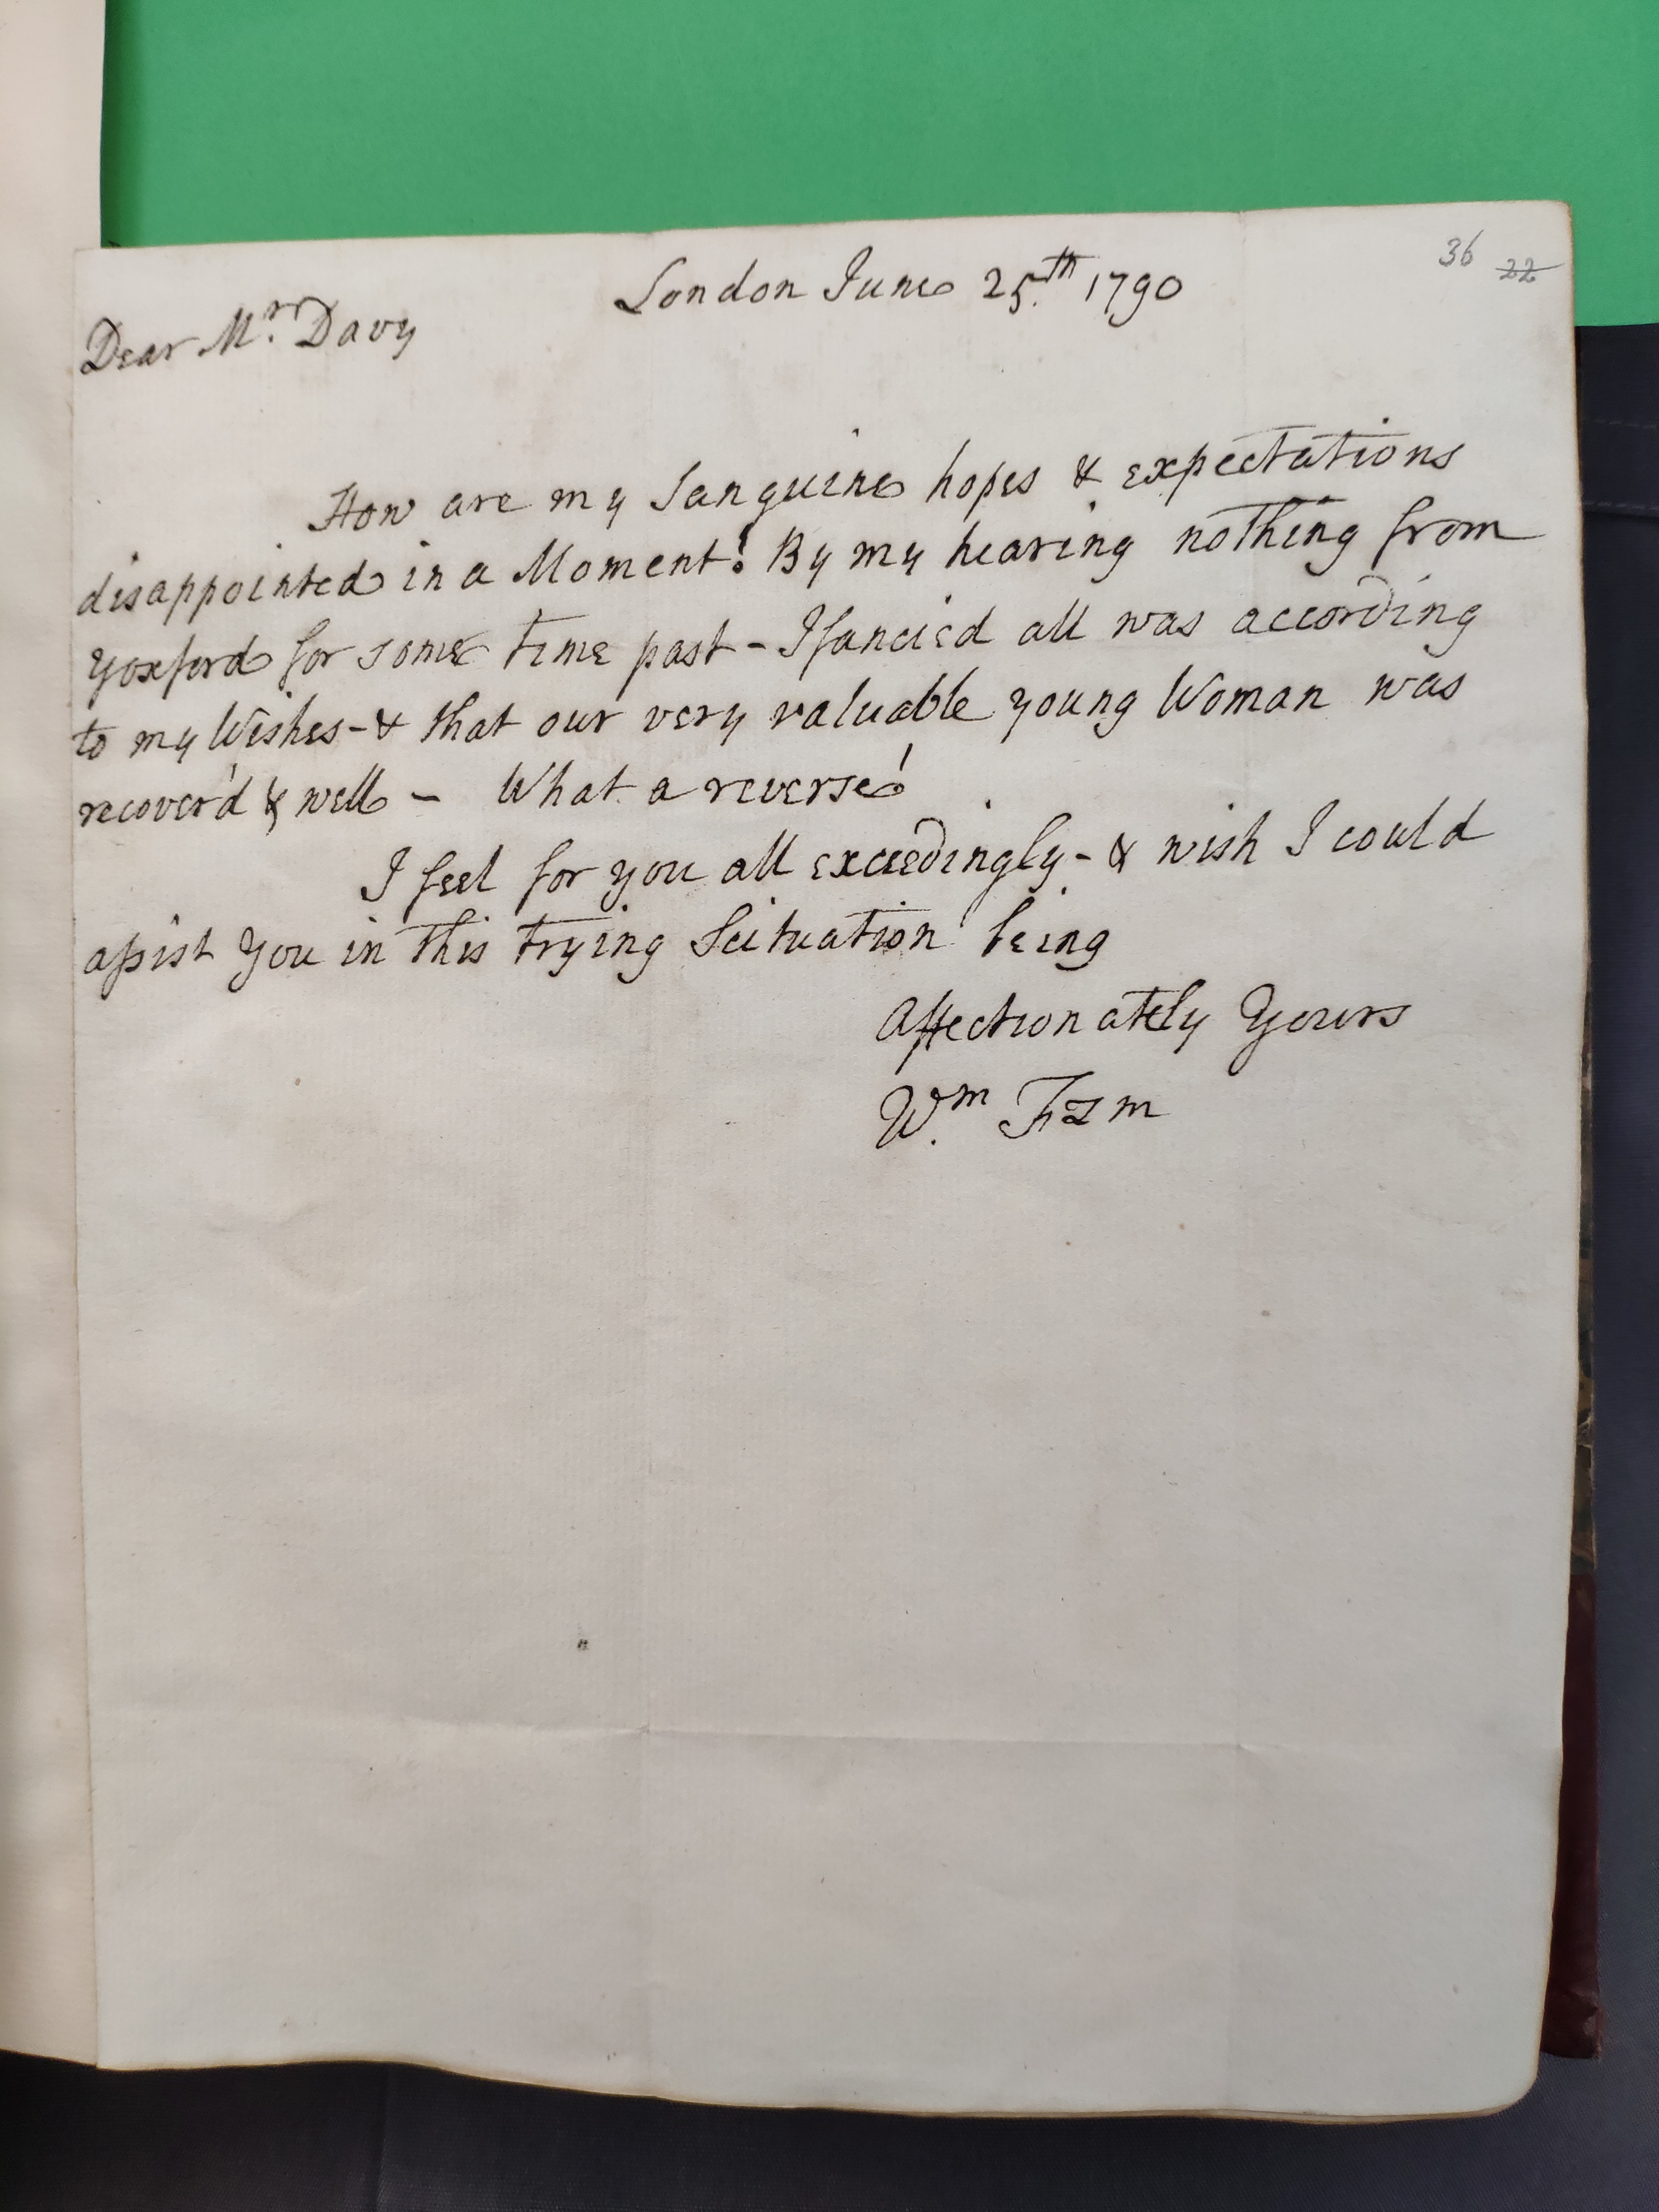 36 22
London June 25.th 1790
Dear Mr. Davy
How are my Sanguine hopes & expectations
disappointed in a Moment! By my hearing nothing from
Yoxford for some time past - I fancied all was according
to my Wishes - & that our very valuable young Woman was
recover'd & well - What a reverse!
I feel for you all exceedingly - & wish I could
assist you in this trying Scituation being
Affectionately Yours
Wm.